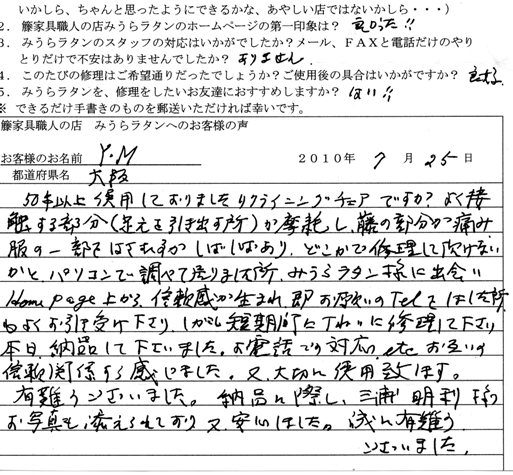 いかしら、ちゃんと思ったようにできるかな、あやしい店ではないかしら・・・）
２．籐家具職人の店みうらラタンのホームページの第一印象は？ 良かった!!
３．みうらラタンのスタッフの対応はいかがでしたか？メール、ＦＡＸと電話だけのやり
とりだけで不安はありませんでしたか？ ありません
４．このたびの修理はご希望通りだったでしょうか？ご使用後の具合はいかがですか？
５．みうらラタンを、修理をしたいお友達におすすめしますか？ はい!!
※ できるだけ手書きのものを郵送いただければ幸いです。
籐家具職人の店 みうらラタンへのお客様の声
お客様のお名前 Y.M ２０１０年 7 月 25 日
都道府県名 大阪
50年以上使用しておりましたリクライニングチェアですが？よく接
触する部分（足元を引き出す所）が摩耗し、藤の部分が痛み
服の一部をはさむ事がしばしばあり、どこかで修理して頂けない
かと、パソコンで調べて居りました所、みうらラタン様に出会い
Home page上から、信頼感が生まれ、即お伺いのTelをしました所
心よくお引き受け下さり、しかも短期間にていねいに修理して下さり
本日、納品して下さいました。お電話での対応、etc お互いの
信頼関係すら感じました。又、大切に使用致します。
有難うございました。 納品に際し、三浦 明利 様の
お写真も添えられており又、安心しました。誠に有難う
ございました。